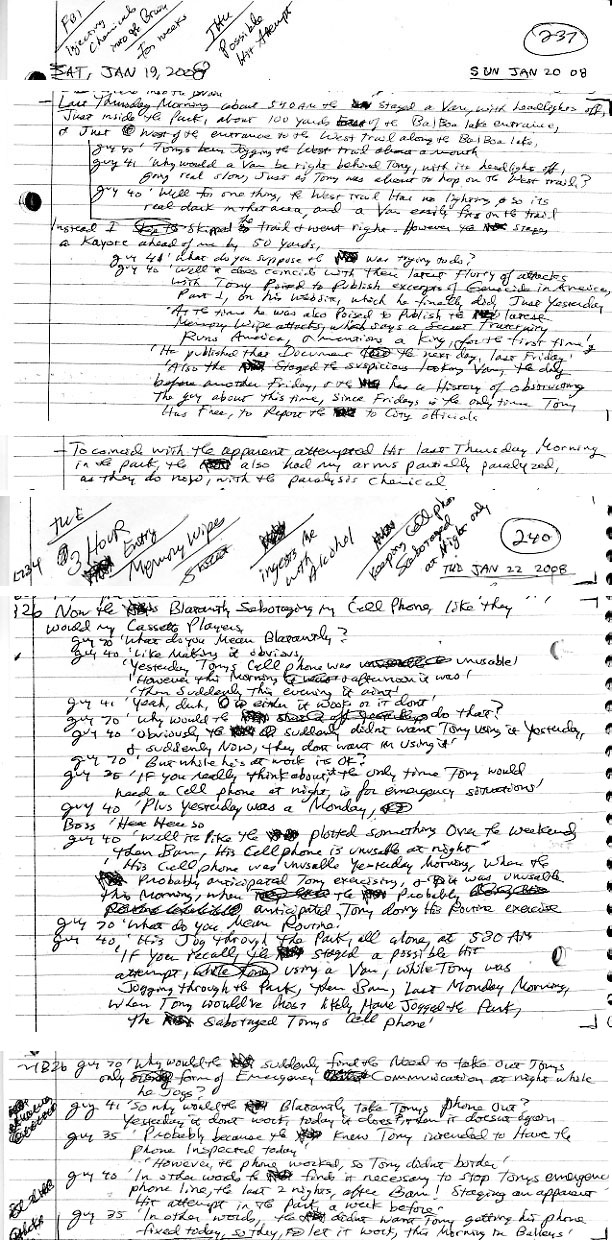 FBI
Injecting
Chemicals
into the Brain
for weeks
THU
Possible
Hit Attempt
237
SAT, JAN 19, 2008
SUN JAN 20 08
- Last Thursday Morning about 530 AM the staged a Van, with headlights off,
Just inside the Park, about 100 yards of the Balboa lake entrance,
& Just west of the entrance to the West trail along the Balboa lake,
guy 40 'Tony's been Jogging the West trail about a month
guy 41 'Why would a Van be right behind Tony, with its headlight off,
going real slow, Just as Tony was about to hop on the West trail?
guy 40 'Well for one thing, the West trail Has no lighting, & so its
real dark in that area, and a Van easily fits on the trail
Instead I skipped the trail & went right. However the stages
a Kayote ahead of me by 50 yards,
guy 41 'What do you suppose the was trying to do?
guy 40 'Well it does coincide with their latest flurry of attacks
with Tony Poised to Publish excerpts of Genocide in America,
Part 1, on his website, which he finally did, Just yesterday
'At the time he was also Poised to Publish the latest
Memory Wipe attacks, which says a Secret Fraternity
Runs America, & mentions a King, for the first time'
'He published that Document the next day, last Friday'
'Also the Staged the suspicious looking Van, the day
before another Friday, & the has a History of obstructing
The guy about this time, Since Fridays is the only time Tony
Has Free, to Report the to City officials
- To coincide with the apparent attempted Hit last Thursday Morning
in the park, the also had my arms partially paralyzed,
as they do now, with the paralysis chemical
TUE
3 HOUR
Entry
Memory Wipe
ingests me
with Alcohol
Keeping Cell phone
Sabotaged
at Night only
240
TUE JAN 22 2008
Now the Blatantly Sabotaging my Cell Phone, like they
would my Cassette Players
guy 70 'What do you Mean Blatantly?
guy 40 'Like Making it obvious,
'Yesterday Tonys Cell phone was unusable'
'However this Morning & afternoon it was'
'then Suddenly this evening it aint'
guy 41 'Yeah, duh, either it works or it dont'
guy 70 'Why would the do that?
guy 40 'Obviously the suddenly didnt want Tony using it Yesterday,
& suddenly Now, they dont want him using it'
guy 70 'But while he's at work its OK?
guy 35 'IF you really think about it the only time Tony would
need a Cell phone at night, is for emergency situations'
guy 40 'Plus Yesterday was a Monday,
Boss
guy 40 'Well its like the plotted something Over the weekend
then Bam, His Cell phone is unusable at night"
'His Cell phone was unusable Yesterday Morning, When the
Probably anticipated Tony exercising, & was unusable
this Morning, when the Probably
anticipated Tony doing His Routine exercise
guy 70 'What do you Mean Routine'
guy 40 'His Jog through the Park, all alone, at 530 AM
'IF you recall, the staged a possible Hit
attempt, using a Van, while Tony was
Jogging through the Park, then Bam, Last Monday Morning,
when Tony would've most likely Have Jogged the Park,
the Sabotaged Tonys Cell phone'
guy 70 'Why would the suddenly find the Need to take out Tonys
only form of Emergency Communication at night while
he Jogs?
guy 41 'So why would the Blatantly take Tonys phone Out?
Yesterday it dont work, today it does, then it doesnt again
guy 35 'Probably because the knew Tony intended to Have the
phone Inspected today'
'However, the phone worked, so Tony didnt border'
guy 40 'In other words the finds it necessary to stop Tonys emergency
phone line, the last 2 nights, after Bam! Staging an apparent
Hit attempt in the Park, a week before'
guy 35 'In other words, the didnt want Tony getting his phone
fixed today, so they let it work, this Morning in